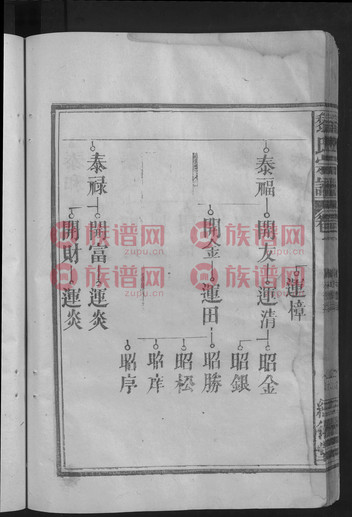 運樟
泰福
開友
運清
昭金
昭銀
開金
運田
昭勝
昭松
昭庠
昭序
泰禄
開富
運炎
開財
運炎
族谱网
zupu.cn
族谱网
zupu.cn
族谱网
zupu.cn
族谱网
zupu.cn